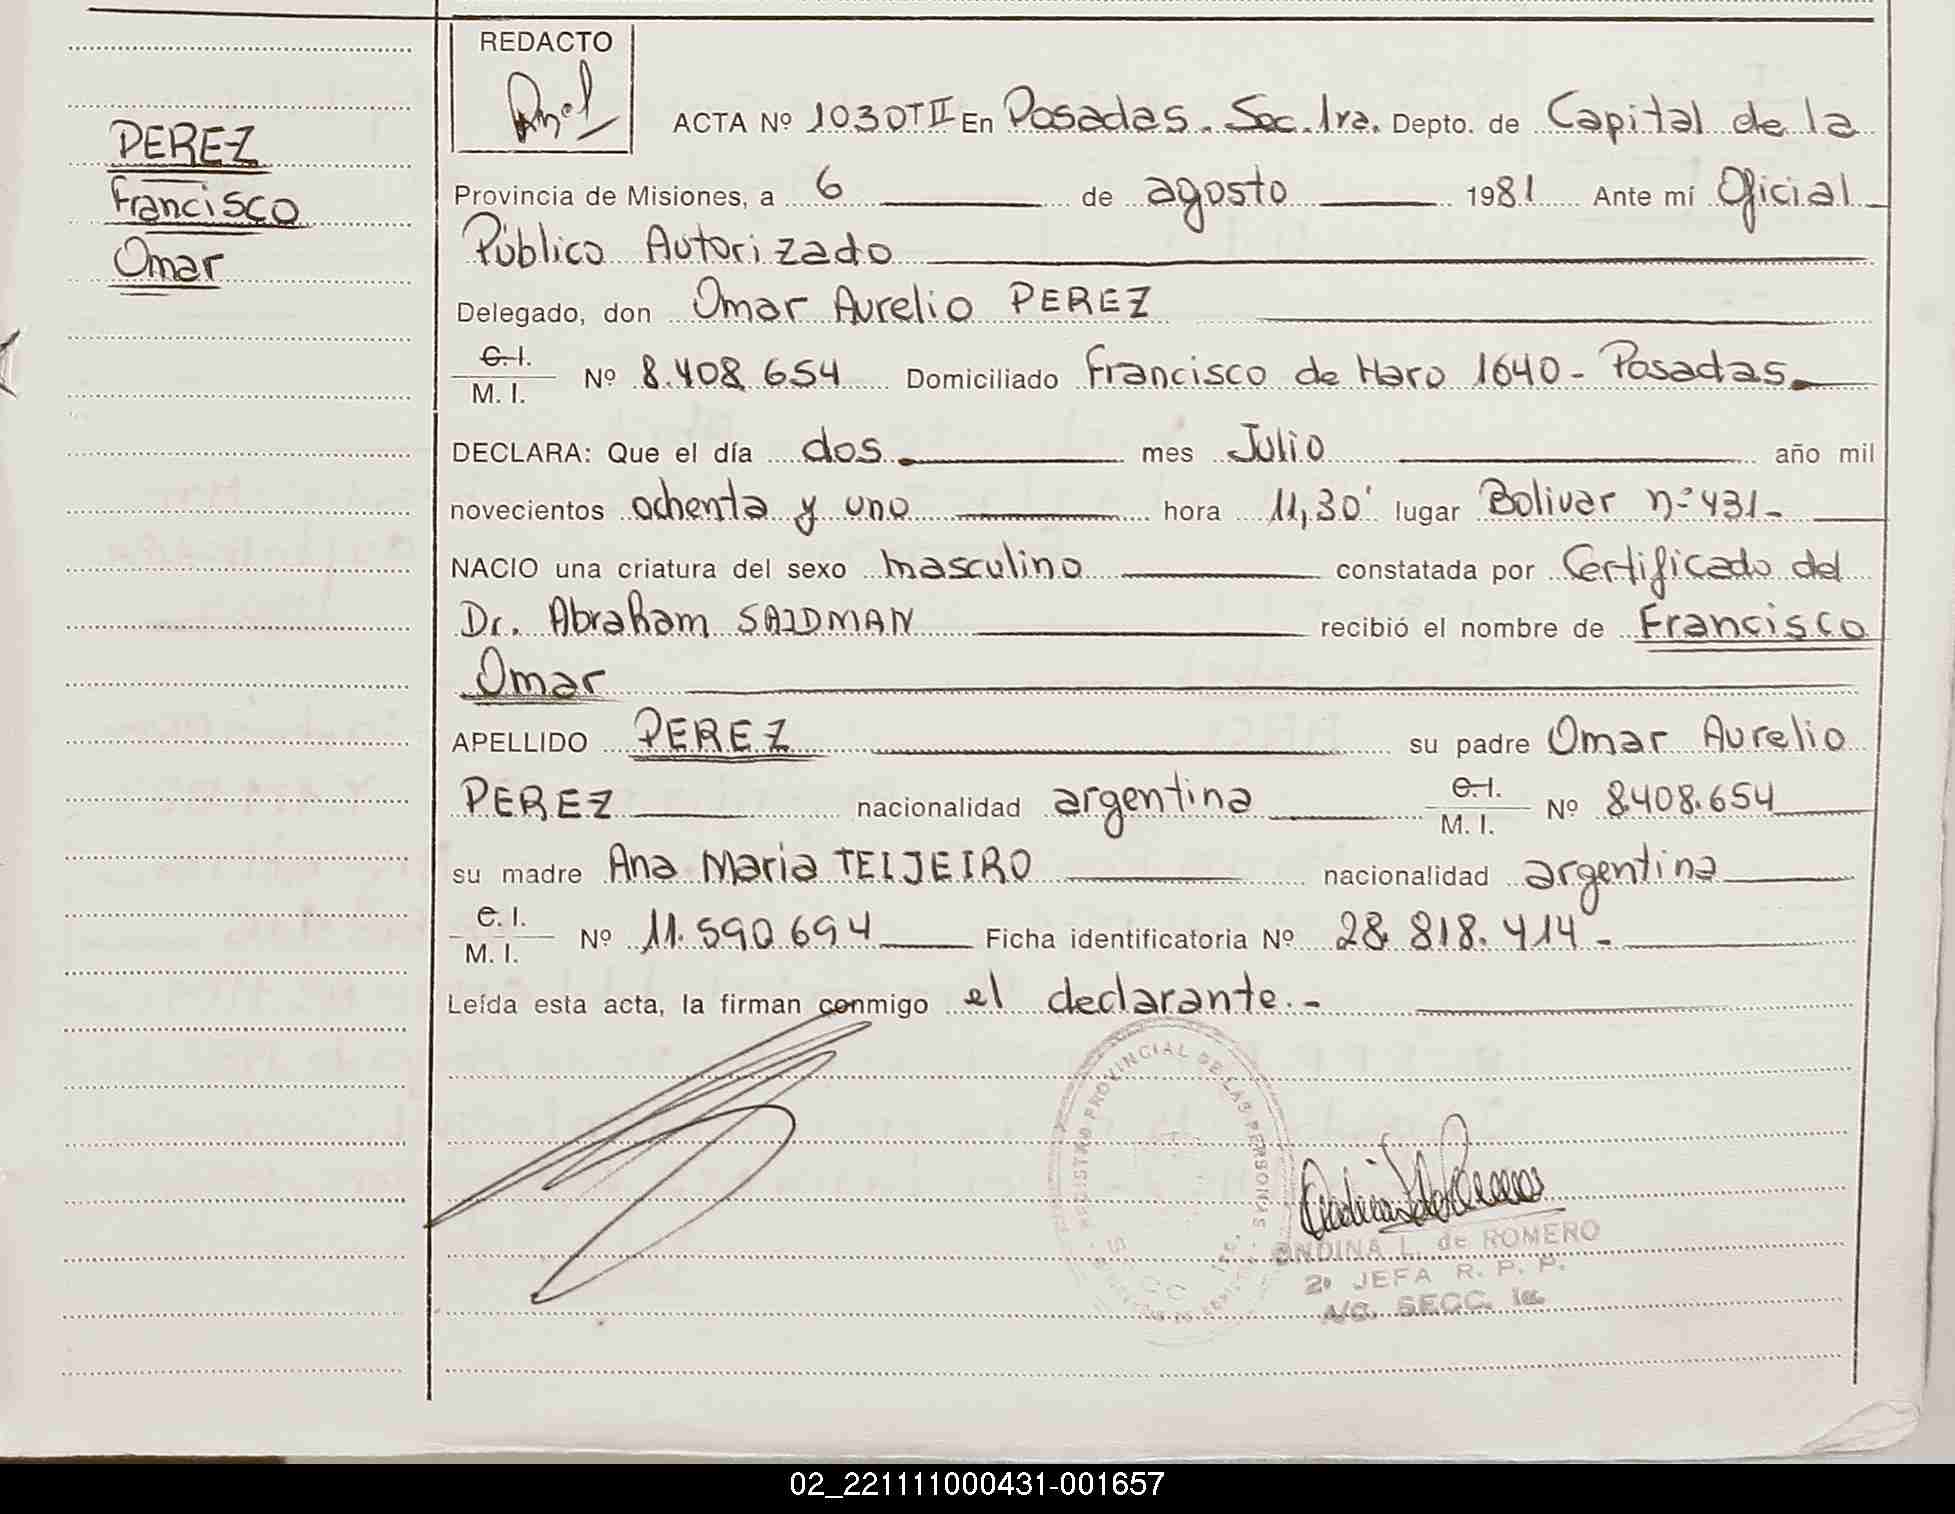 REDACTO
PEREZ
Francisco
Omar
ACTA Nº 1030 T II En Posadas. Sec. 1ra. Depto. de Capital de la
Provincia de Misiones, a 6 de agosto 1981 Ante mí Oficial
Público Autorizado
Delegado, don Omar Aurelio PEREZ
C. I.
M. I. Nº 8.408.654 Domiciliado Francisco de Haro 1640 - Posadas.
DECLARA: Que el día dos. mes Julio año mil
novecientos ochenta y uno hora 11,30' lugar Bolivar n:° 431-
NACIO una criatura del sexo masculino constatada por Certificado del
Dr. Abraham SAIDMAN recibió el nombre de Francisco
Omar
APELLIDO PEREZ su padre Omar Aurelio
PEREZ nacionalidad argentina C. I.
M. I. Nº 8.408.654
su madre Ana Maria TEIJEIRO nacionalidad argentina
C. I.
M. I. Nº 11.590.694 Ficha identificatoria Nº 28.818.414-
Leída esta acta, la firman conmigo el declarante.-
REGISTRO PROVINCIAL DE LAS PERSONAS
ONDINA L. de ROMERO
2º JEFA R. P. P.
A/C. SECC. 1a.
02_221111000431-001657